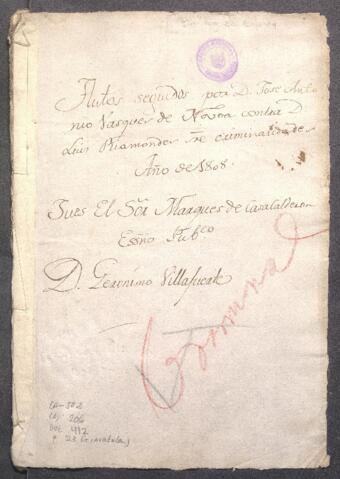 Autos seguidos por D. Jose Anto
nio Vasques de Novoa contra D.
Luis Riamonder sre criminalidades
Año de 1808.
Jues El Sōr Marques de Casa Calderon
Essno Pubco
D. Gerónimo Villafuerte
Criminal
206
DOC 412